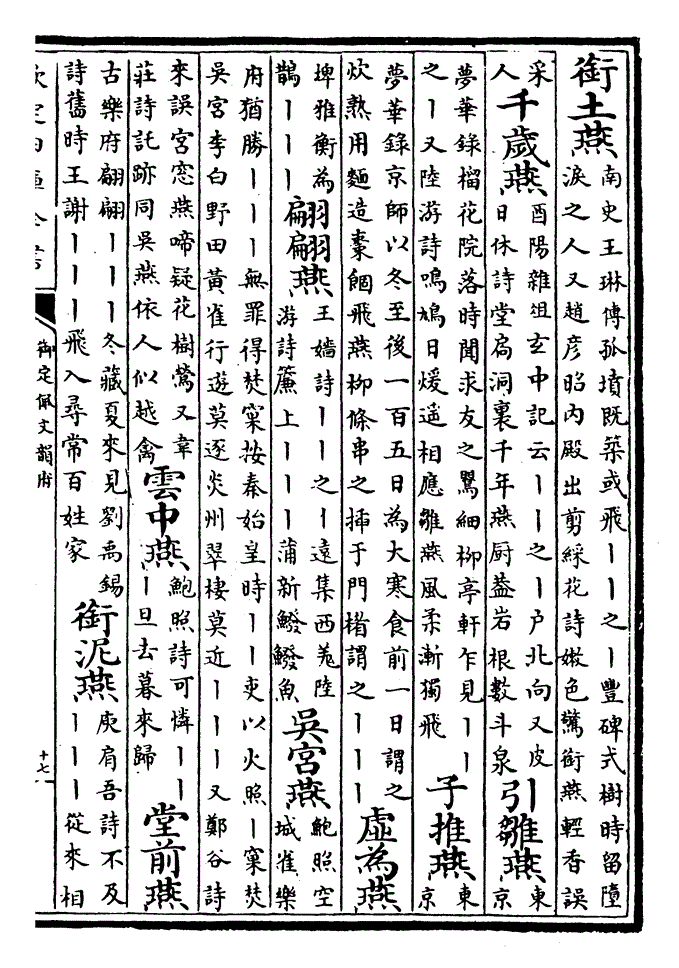 銜土燕
南史王琳傳孤墳既築或飛丨丨之丨豐碑式樹時留墮
淚之人又趙彦昭内殿出剪綵花詩嫰色驚銜燕輕香誤
采
人
千歲燕
酉陽雜俎玄中記云丨丨之丨戸北向又皮
日休詩堂扄洞裏千年燕厨葢岩根數斗泉
引雛燕
東
京
夢華錄榴花院落時聞求友之鸎細柳亭軒乍見丨丨
之丨又陸游詩鳴鳩日煖遥相應雛燕風柔漸獨飛
子推燕
東
京
夢華錄京師以冬至後一百五日為大寒食前一日謂之
炊熟用麵造棗䭅飛燕柳條串之揷于門楣謂之丨丨丨
虛為燕
埤雅衡為
鵲丨丨丨
翩翩燕
王嬙詩丨丨之丨遠集西羗陸
游詩簾上丨丨丨蒲新鱍鱍魚
吳宮燕
鮑照空
城雀樂
府猶勝丨丨丨無罪得焚窠按秦始皇時丨丨吏以火照丨窠焚
吳宮李白野田黃雀行遊莫逐炎州翠棲莫近丨丨丨又鄭谷詩
來誤宮窓燕啼疑花樹鶯又韋
莊詩託跡同吳燕依人似越禽
雲中燕
鮑照詩可憐丨丨
丨旦去暮來歸
堂前燕
古樂府翩翩丨丨丨冬藏夏來見劉禹錫
詩舊時王謝丨丨丨飛入尋常百姓家
銜泥燕
庾肩吾詩不及
丨丨丨從來相
欽定四庫全書
御定佩文韻府
十七